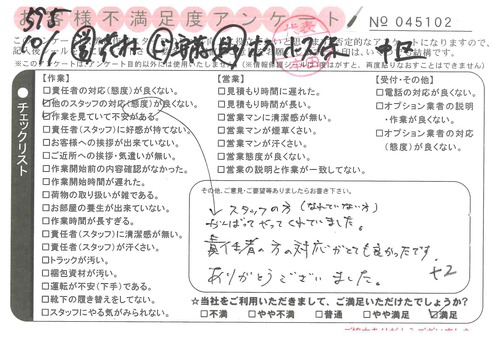 お客様不満足度アンケート
No 045102
10/1
【作業】
□責任者の対応(態度)が良くない。
□他のスタッフの対応(態度)が良くない。
□作業を見ていて不安がある。
□責任者(スタッフ)に好感が持てない。
□お客様への挨拶が出来ていない。
□ご近所への挨拶・気遣いが無い。
□作業開始前の内容確認がなかった。
□作業開始時間が遅れた。
□荷物の取り扱いが雑である。
□お部屋の養生が出来ていない。
□作業時間が長すぎる。
□責任者(スタッフ)に清潔感が無い。
□責任者(スタッフ)が汗くさい。
□トラックが汚い。
□梱包資材が汚い。
□運転が不安(下手)である。
□靴下の履き替えをしてない。
□スタッフにやる気がみられない。
チェックリスト
【営業】
□見積もり時間に遅れた。
□見積もり時間が長い。
□営業マンに清潔感が無い。
□営業マンが煙草くさい。
□営業マンが汗くさい。
□営業態度が良くない。
□営業の説明と作業が一致してない。
【受付・その他】
□電話の対応が良くない。
□オプション業者の説明
・作業が良くない。
□オプション業者の対応
(態度)が良くない。
その他、ご意見・ご要望等ありましたらお書き下さい。
スタッフの方(なれていない方)
がんばってやってくれていました。
責任者の方の対応がとても良かったです。
ありがとうございました。
+2
☆当社をご利用いただきまして、ご満足いただけたでしょうか?
□不満 □やや不満 □普通 □やや満足 ☑満足